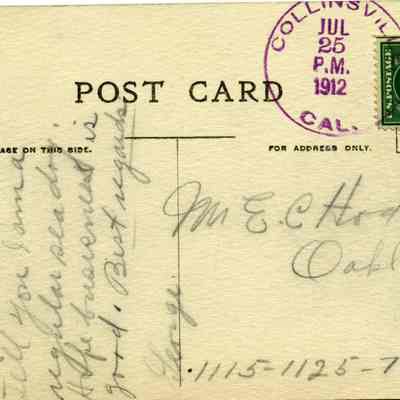 COLLINSVIL
JUL
25
P.M.
1912
CAL.
U.S. POSTAGE
POST CARD
AGE ON THIS SIDE.
FOR ADDRESS ONLY.
Tell you I am a
regular sead dog.
Hope buseness is
good. Best regards
George.
Mr E. C. Hod
Oakl
1115-1125-7